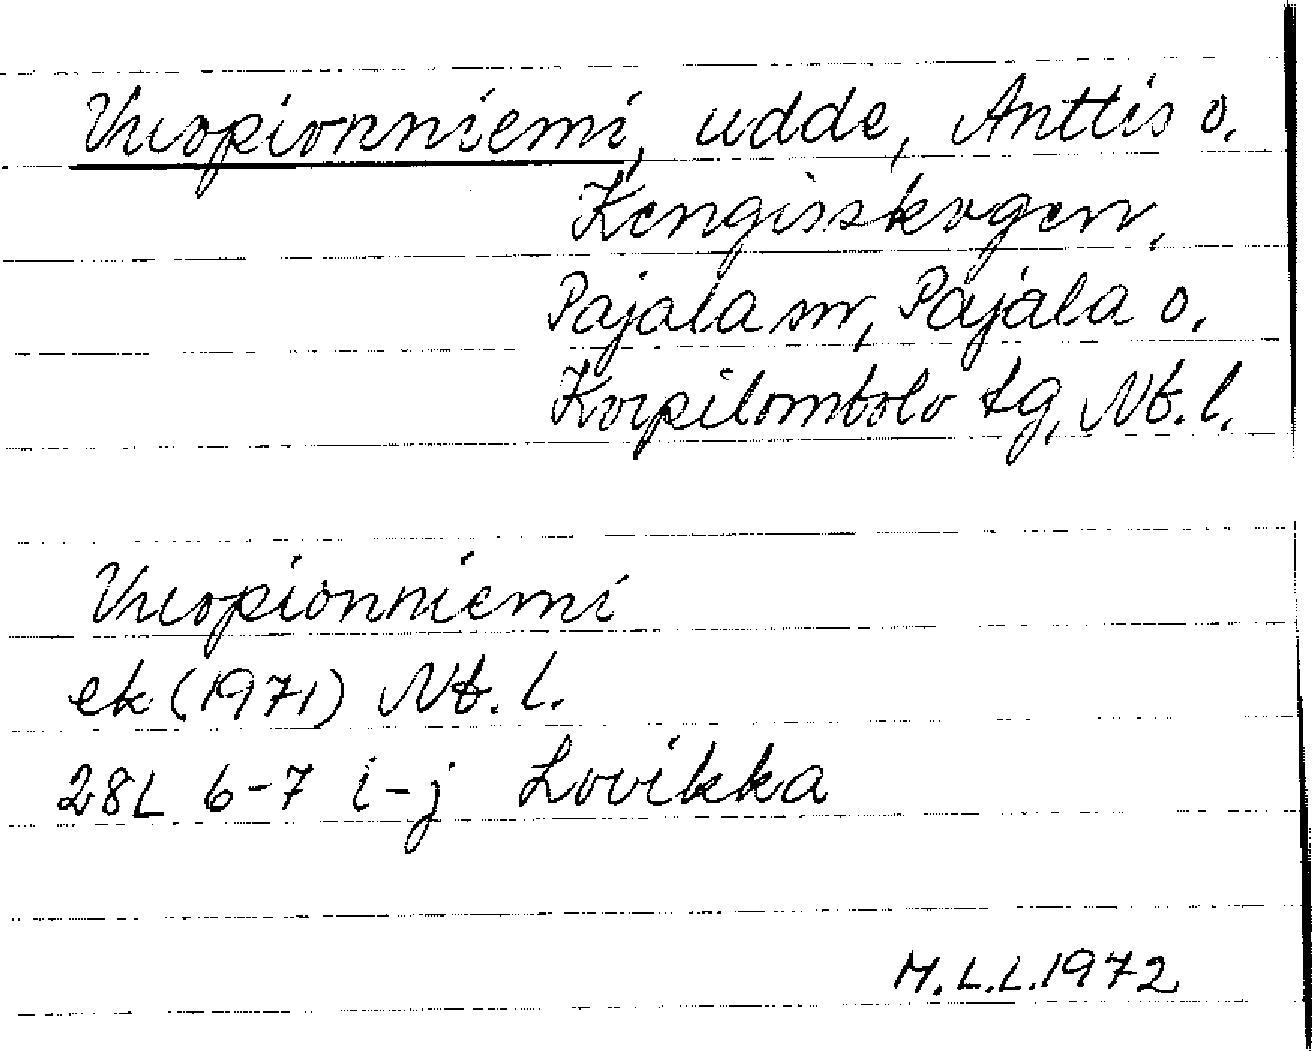 Vuopionniemi, udde, Anttis o.
Kengisskogen,
Pajala sn, Pajala o.
Korpilombolo tg, Nb. l.
Vuopionniemi
ek (1971) Nb. l.
28L 6-7 i-j Lovikka
M.L.L. 1972